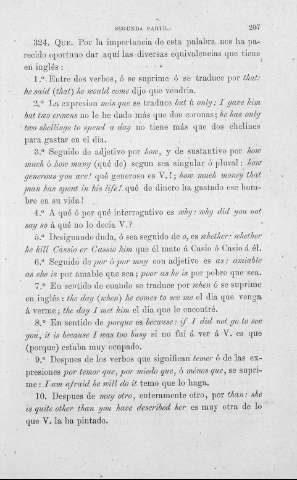 SEGUNDA PARTE. 207
324. QUE. Por la importancia de esta palabra, nos ha pa-
recido oportuno dar aquí las diversas equivalencias que tiene
en inglés:
1.ª Entre dos verbos, ó se suprime ó se traduce por that:
he said (that) he would come dijo que vendria.
2.ª La expresion más que se traduce but ó only: I gave him
but two crowns no le he dado más que dos coronas; he has only
two shellings to spend a day no tiene más que dos chelines
para gastar en el dia.
3.ª Seguido de adjetivo por how, y de sustantivo por how
much ó how many (qué de) segun sea singular ó plural: how
generous you are! qué generoso es V.!; how much money that
man has spent in his life! qué de dinero ha gastado ese hom-
bre en su vida!
4.ª A qué ó por qué interrogativo es why: why did you not
say so á qué no lo decia V.?
5.ª Designando duda, ó sea seguido de o, es whether: whether
he kill Cassio or Cassio him que él mate á Casio ó Casio á él.
6.ª Seguido de por ó por muy con adjetivo es as: amiable
as she is por amable que sea; poor as he is por pobre que sea.
7.ª En sentido de cuando se traduce por when ó se suprime
en inglés: the day (when) he comes to see me el dia que venga
á verme; the day I met him el dia que le encontré.
8.ª En sentido de porque es because: if I did not go to see
you, it is because I was too busy si no fuí á ver á V. es que
(porque) estaba muy ocupado.
9.ª Despues de los verbos que significan temer ó de las ex-
presiones por temor que, por miedo que, ó ménos que, se supri-
me: I am afraid he will do it temo que lo haga.
10. Despues de muy otro, enteramente otro, por than: she
is quite other than you have described her es muy otra de lo
que V. la ha pintado.